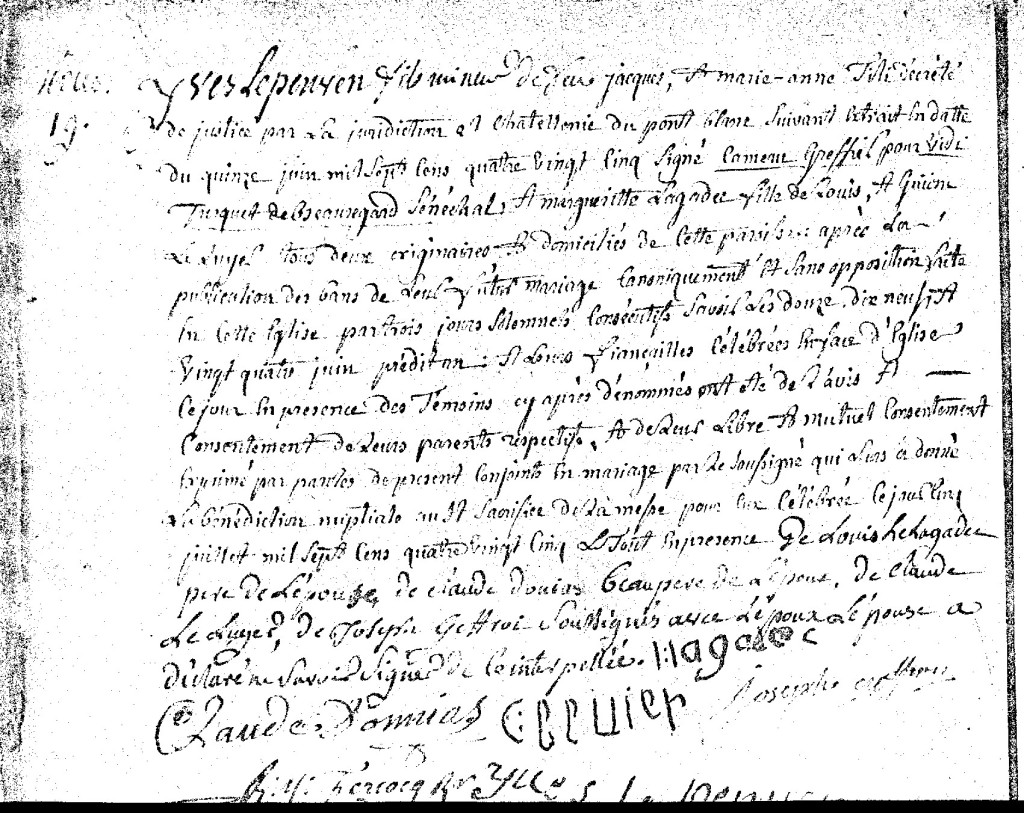 19.
yves Lepenven fils mineur de feu jacques, et marie-anne décrété
de justice par La juridiction et Chatellenie du pont blanc Suivant Extrait En datte
du quinze juin mil sept Cens quatre vingt Cinq Signé Lameur Greffier pour Vidi
Turquet de Beauregard Sénéchal, et margueritte Lagadec fille de Louis, et
tous deux originaires et domiciliés de Cette paroisse après La
publication des bans de Leur futur mariage Canoniquement et Sans opposition faite
En Cette Eglise par trois jours Solemnels Consécutifs Savoir Les douze, dix neuf, et
Vingt quatre juin prédit an. et Leurs fiançailles Célébrées En face d'Eglise
Ce jour En presence des Temoins cy après dénommés ont été de L'avis et
Consentement de Leurs parents respectifs, et de Leur Libre et mutuel Consentement
Exprimé par paroles de present Conjoints En mariage par Le Soussigné qui Leur a donné
La bénédiction nuptiale au St Sacrifice de La messe pour Eux Célébrée Ce jour Cinq
juillet mil Sept Cens quatre Vingt Cinq Le Tout En presence de Louis Le Lagadec
pere de L'épouse, de claude beaupere de L'epoux, de claude
de Joseph Geffroi Soussignés avec L'époux L'épouse a
déclaré ne Savoir Signer de Ce interpellée. Lagadec
Claude Joseph
yves Le Penven